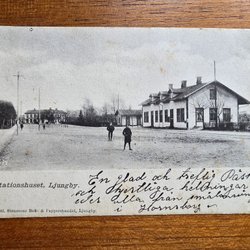 tationshuset, Ljungby.
En glad och treflig Påsk
och hjertliga helsningar
der alla från
i Hornsborg
Bok- & Pappershandel, Ljungby.